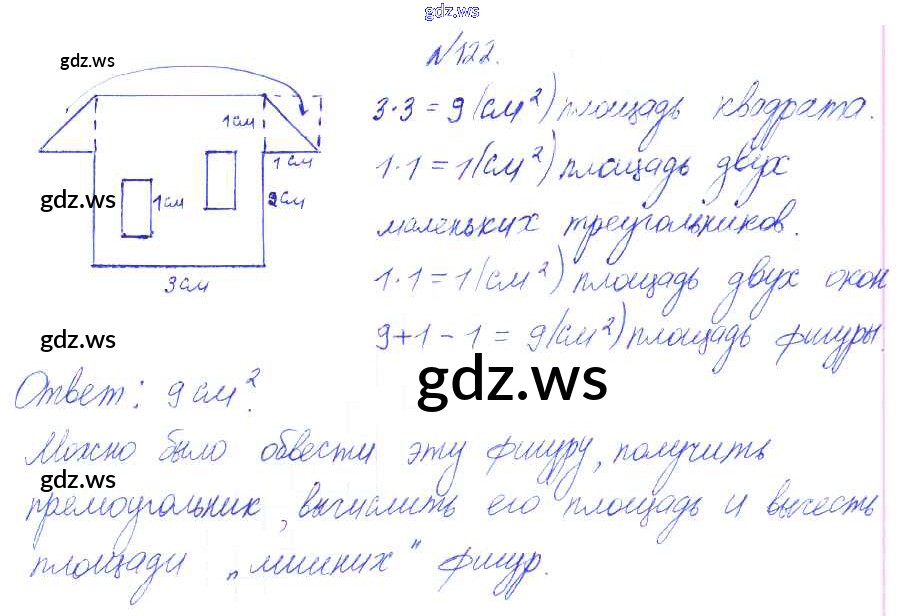 gdz.ws
№122.
gdz.ws
1 см
1 см
gdz.ws
1 см
2 см
3 см
3·3 = 9 (см²) площадь квадрата.
1·1 = 1 (см²) площадь двух
маленьких треугольников.
1·1 = 1 (см²) площадь двух окон
gdz.ws
9+1-1 = 9 (см²) площадь фигуры.
gdz.ws
Ответ: 9 см².
Можно было обвести эту фигуру, получить
gdz.ws
прямоугольник, вычислить его площадь и вычесть
площади „лишних" фигур.